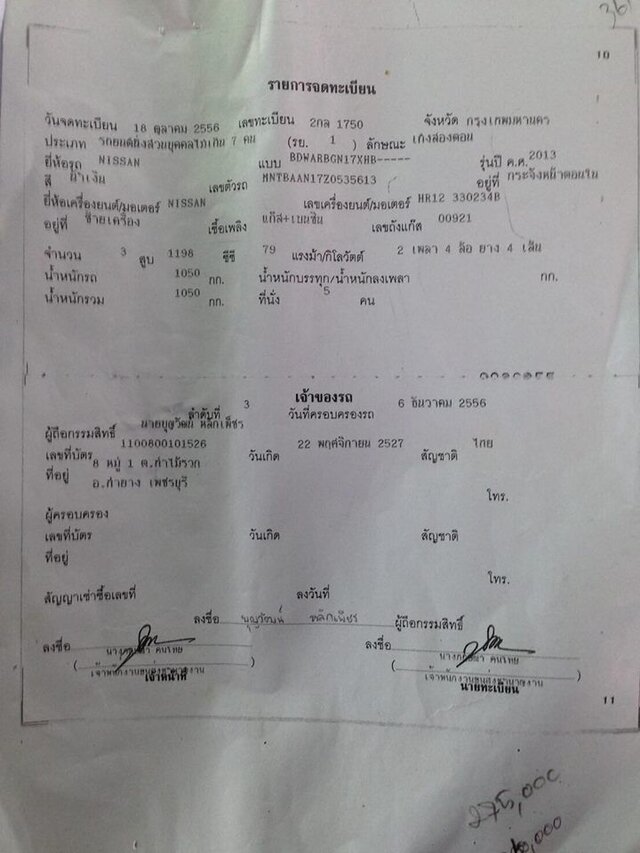 361
10
รายการจดทะเบียน
วันจดทะเบียน 18 ตุลาคม 2556 เลขทะเบียน 2กล 1750 จังหวัด กรุงเทพมหานคร
ประเภท รถยนต์นั่งส่วนบุคคลไม่เกิน 7 คน (รย. 1 ) ลักษณะ เก๋งสองตอน
ยี่ห้อรถ NISSAN แบบ BDWARBGN17XHB----- รุ่นปี ค.ศ. 2013
สี น้ำเงิน เลขตัวรถ MNTBAAN17Z0535613 อยู่ที่ กระจังหน้าตอนใน
ยี่ห้อเครื่องยนต์/มอเตอร์ NISSAN เลขเครื่องยนต์/มอเตอร์ HR12 330234B
อยู่ที่ ซ้ายเครื่อง เชื้อเพลิง แก๊ส+เบนซิน เลขถังแก๊ส 00921
จำนวน 3 สูบ 1198 ซีซี 79 แรงม้า/กิโลวัตต์ 2 เพลา 4 ล้อ ยาง 4 เส้น
น้ำหนักรถ 1050 กก. น้ำหนักบรรทุก/น้ำหนักลงเพลา กก.
น้ำหนักรวม 1050 กก. ที่นั่ง 5 คน
เจ้าของรถ
ลำดับที่ 3 วันที่ครอบครองรถ 6 ธันวาคม 2556
ผู้ถือกรรมสิทธิ์ นายบุญวัฒน์ หลักเพ็ชร
เลขที่บัตร 1100800101526 วันเกิด 22 พฤศจิกายน 2527 สัญชาติ ไทย
ที่อยู่ 8 หมู่ 1 ต.ท่าไม้รวก
อ.ท่ายาง เพชรบุรี
โทร.
ผู้ครอบครอง
เลขที่บัตร วันเกิด สัญชาติ
ที่อยู่
โทร.
สัญญาเช่าซื้อเลขที่ ลงวันที่
ลงชื่อ บุญวัฒน์ หลักเพ็ชร ผู้ถือกรรมสิทธิ์
ลงชื่อ ลงชื่อ
คนไทย คนไทย
( เจ้าพนักงานขนส่งชำนาญงาน ) ( เจ้าพนักงานขนส่งชำนาญงาน )
เจ้าหน้าที่ นายทะเบียน
11
275,000